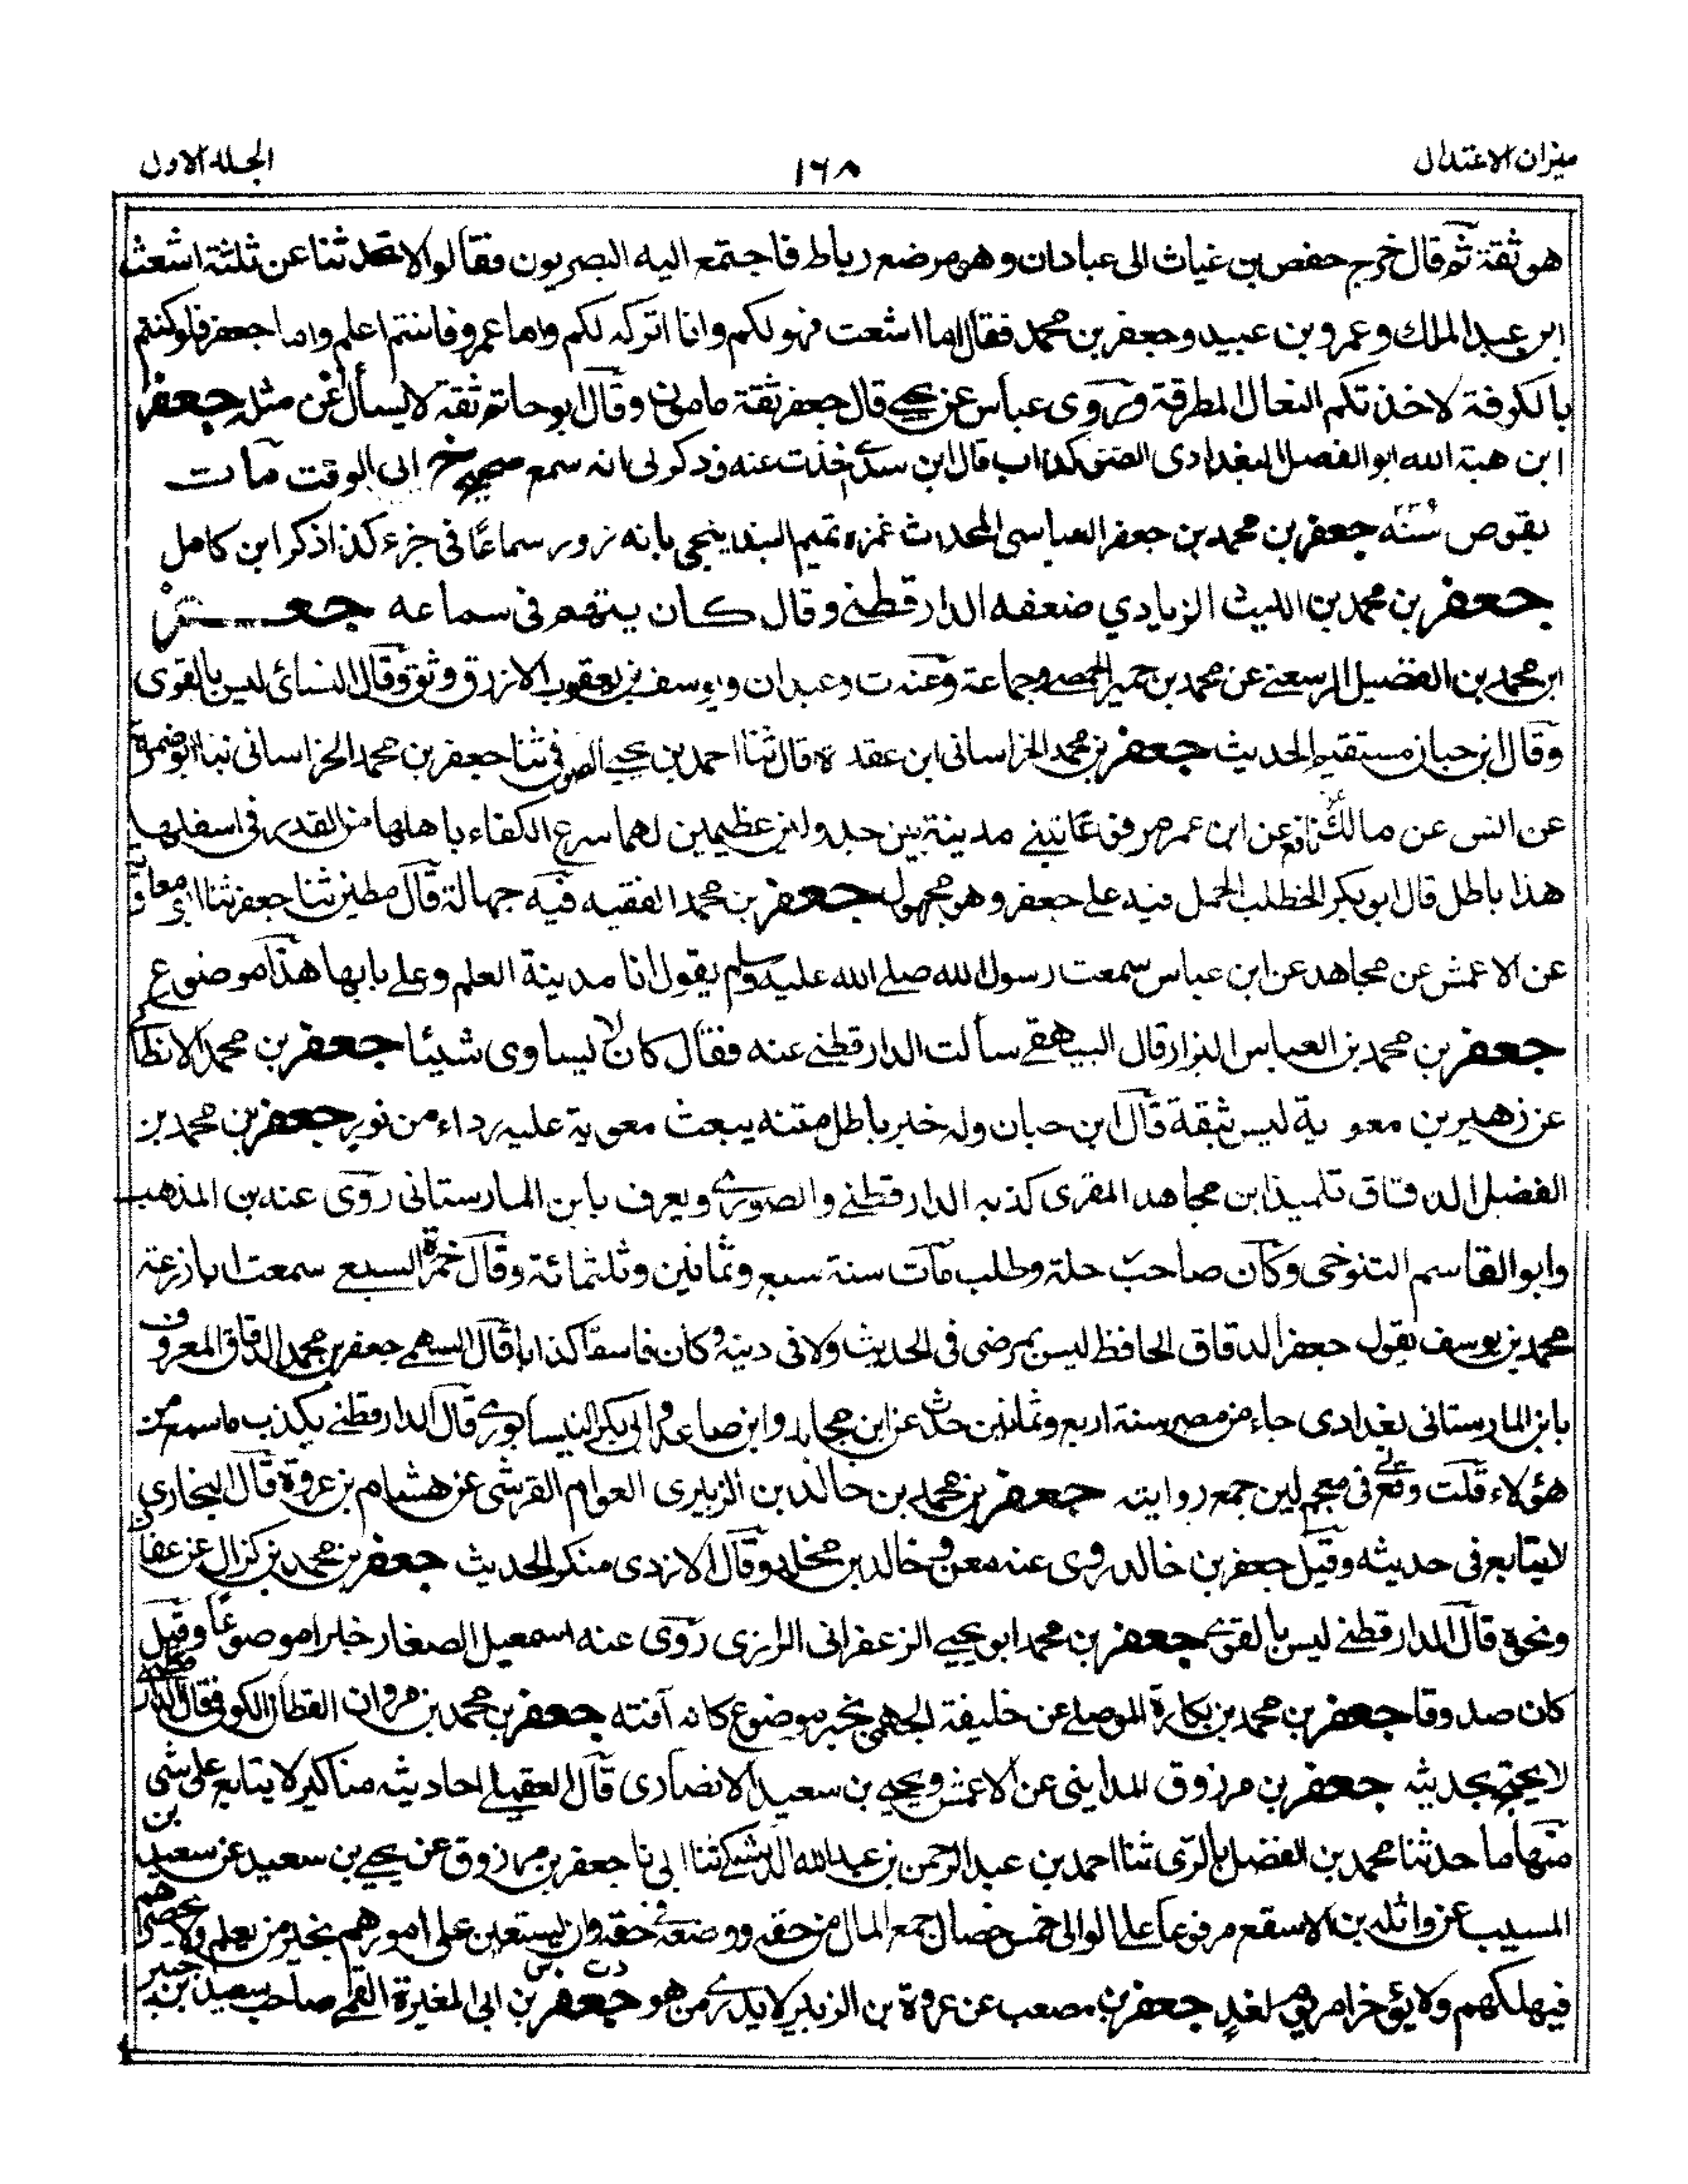 ميزان الاعتدال
١٦٨
الجلد الاول
هو ثقة ثم قال خرج حفص بن غياث الى عبادان وهو موضع رباط فاجتمع اليه البصريون فقالوا لا تحدثنا عن ثلثة اشعث
ابن عبد الملك وعمرو بن عبيد وجعفر بن محمد فقال اما اشعث فهو لكم وانا اتركه لكم واما عمرو فانتم اعلم واما جعفر فلو كنتم
بالكوفة لاخذتكم النعال المطرقة وروى عباس عن يحيے قال جعفر ثقة مامون وقال ابو حاتم ثقة لا يسأل عن مثله جعفر
ابن هبة الله ابو الفضل البغدادى كذاب قال ابن خذت عنه وذكر لى انه سمع صحيح خ ابى الوقت مات
بقوص سنة جعفر بن محمد بن جعفر العباسى المحدث غمزه تميم البندينجى بانه زور سماعًا فى جزء كذا ذكر ابن كامل
جعفر بن محمد بن الليث الزيادي ضعفه الدارقطنے وقال كان يتهم فى سماعه جعفر
ابن محمد بن الفضيل الرسعنے عن محمد بن حمير الحمصے وجماعة وعنه ت وعبدان ويوسف بن يعقوب الازرق وثق وقال النسائى ليس بالقوى
وقال ابن حبان مستقيم الحديث جعفر بن محمد الخراسانى ابن عقدة قال ثنا احمد بن يحيے الصوفى ثنا جعفر بن محمد الخراسانى نبا ابو ضمرة
عن انس عن مالك عن نافع عن ابن عمر مرفوعا تبنے مدينة بين جدولين عظيمين لهما اسرع الكفاء باهلها من القدر فى اسفلها
هذا باطل قال ابو بكر الخطيب الحمل فيه على جعفر وهو مجهول جعفر بن محمد الفقيه فيه جهالة قال مطين ثنا جعفر ثنا ابو معاوية
عن الاعمش عن مجاهد عن ابن عباس سمعت رسول الله صلے الله عليه وسلم يقول انا مدينة العلم وعلے بابها هذا موضوع
جعفر بن محمد بن العباس البزار قال البيهقے سألت الدارقطنے عنه فقال كان لا يساوى شيئا جعفر بن محمد الانطاكى
عن زهير بن معوية ليس بثقة قال ابن حبان وله خبر باطل متنه يبعث معوية عليه رداء من نور جعفر بن محمد بن
الفضل الدقاق تلميذ ابن مجاهد المقرى كذبه الدارقطنے والصورے ويعرف بابن المارستانى روى عنه بن المذهب
وابو القاسم التنوخى وكان صاحب حلة وطلب مات سنة سبع وثمانين وثلثمائة وقال حمزة السبع سمعت ابا زرعة
محمد بن يوسف يقول جعفر الدقاق الحافظ ليس بمرضى فى الحديث ولا فى دينه وكان فاسقا كذابا قال السهمے جعفر بن محمد الدقاق المعروف
بابن المارستانى بغدادى جاء من مصر سنة اربع وثمانين حدث عن ابن مجاهد وابن صاعد وابى بكر النيسابورے قال الدارقطنے يكذب ما سمع من
هؤلاء قلت وقع لے فى معجم لين جمع روايته جعفر بن محمد بن خالد بن الزبيرى العوام القرشى عن هشام بن عروة قال البخارى
لا يتابع فى حديثه وقيل جعفر بن خالد روى عنه معن وخالد بن مخلد وقال الازدى منكر الحديث جعفر بن محمد بن كزال عن عفان
ونحوه قال الدارقطنے ليس بالقوے جعفر بن محمد ابو يحيے الزعفرانى الرازى روى عنه اسمعيل الصفار خبرا موضوعًا وقيل
كان صدوقا جعفر بن محمد بن بكارة الموصلے عن خليفة الجهمى بخبر موضوع كانه آفته جعفر بن محمد بن مروان القطان الكوفى قال الدارقطنے
لا يحتج بحديثه جعفر بن مرزوق المداينى عن الاعمش ويحيے بن سعيد الانصارى قال العقيلے احاديثه مناكير لا يتابع على شى
منها ما حدثنا محمد بن الفضل بالرى ثنا احمد بن عبد الرحمن بن عبد الله الدشتكے ثنا ابى نا جعفر بن مرزوق عن يحيے بن سعيد عن سعيد بن
المسيب عن واثلة بن الاسقع مرفوعا على الوالى خمس خصال جمع المال من حقه ووضعه فى حقه وان يستعين على امورهم بخير من يعلم ولا يحصرهم
فيهلكهم ولا يؤخر امر يوم لغدٍ جعفر بن مصعب عن عروة بن الزبير لا يدرے من هو جعفر بن ابى المغيرة القمے صاحب سعيد بن جبير